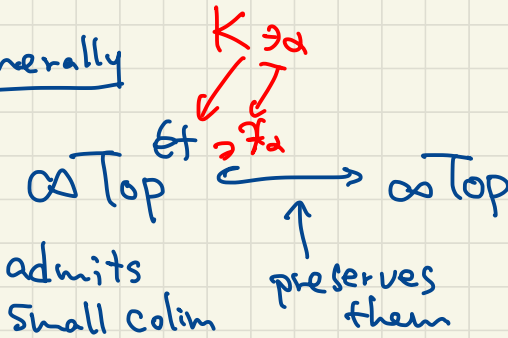 nerally
K ∋ α
∞Top ét ∋ 𝒳α ↪ ∞Top
admits
small colim
preserves
them